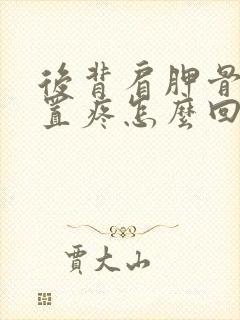 後背肩胛骨
置疼怎麼回
賈大山